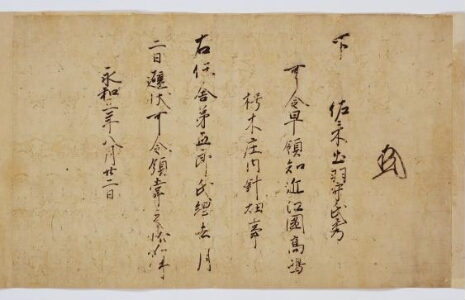 下　佐々木出羽守氏秀
可令早領知近江國高嶋
朽木庄内針畑事
右任舎弟五郎氏綱去月
二日避状可令領掌之状如件
永和 年八月廿二日